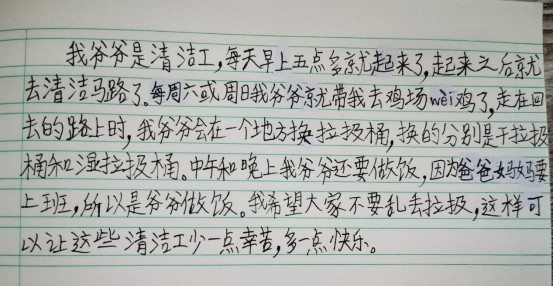 我爷爷是清洁工,每天早上五点多就起来了,起来之后就
去清洁马路了。每周六或周日我爷爷就带我去鸡场wèi鸡了,走在回
去的路上时,我爷爷会在一个地方换垃圾桶,换的分别是干垃圾
桶和湿垃圾桶。中午和晚上我爷爷还要做饭,因为爸爸妈妈要
上班,所以是爷爷做饭。我希望大家不要乱丢垃圾,这样可
以让这些清洁工少一点辛苦,多一点快乐。